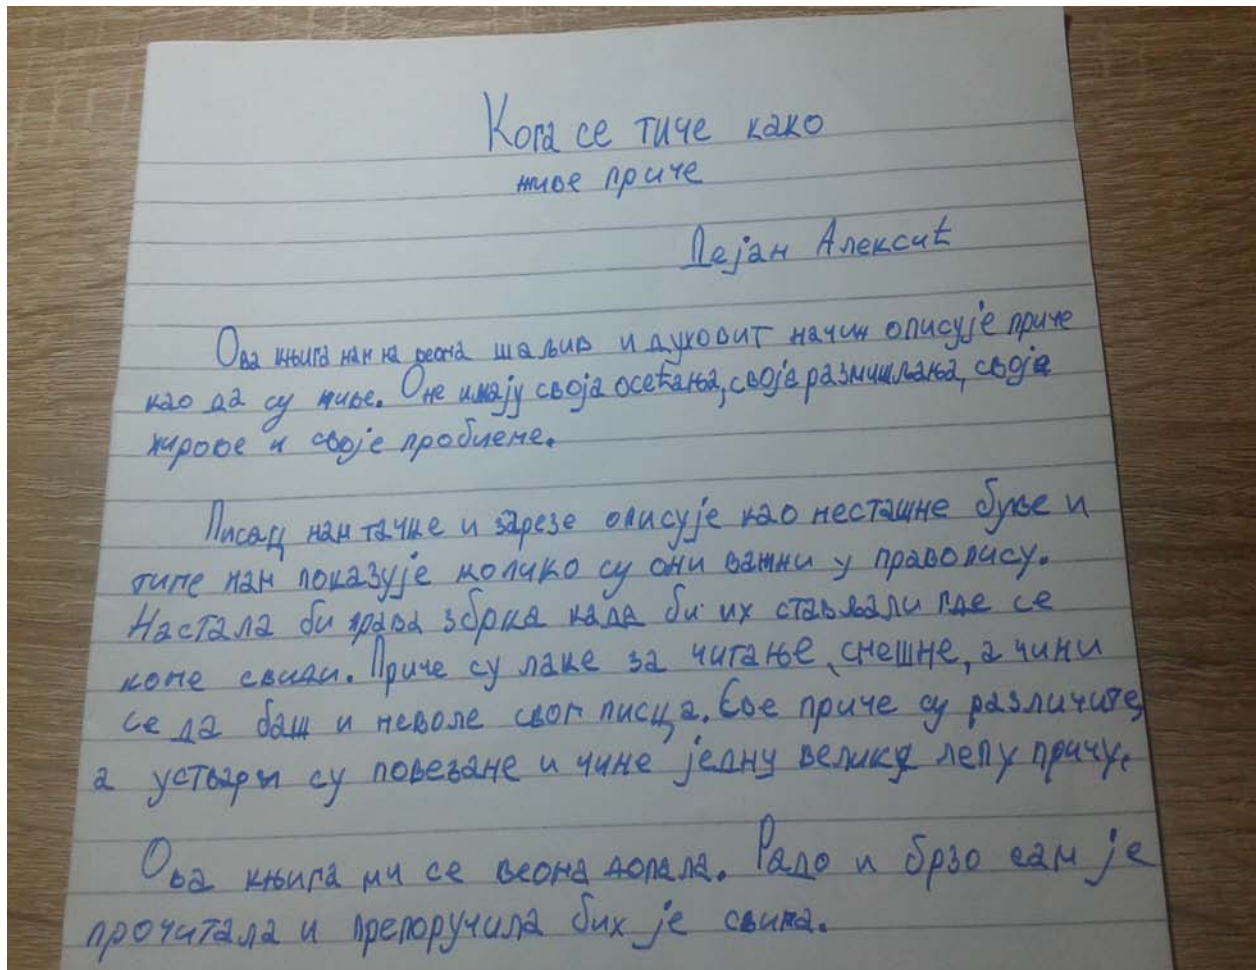 Кога се тиче како
живе приче
Дејан Алексић
Ова књига нам на веома шаљив и духовит начин описује приче
као да су живе. Оне имају своја осећања, своја размишљања, своје
жирове и своје проблеме.
Писац нам тачке и зарезе описује као несташне буве и
тиме нам показује колико су они важни у правопису.
Настала би права збрка када би их стављали где се
коме свиди. Приче су лаке за читање, смешне, а чини
се да баш и неволе свог писца. Све приче су различите,
а уствари су повезане и чине једну велику лепу причу.
Ова књига ми се веома допала. Радо и брзо сам је
прочитала и препоручила бих је свима.